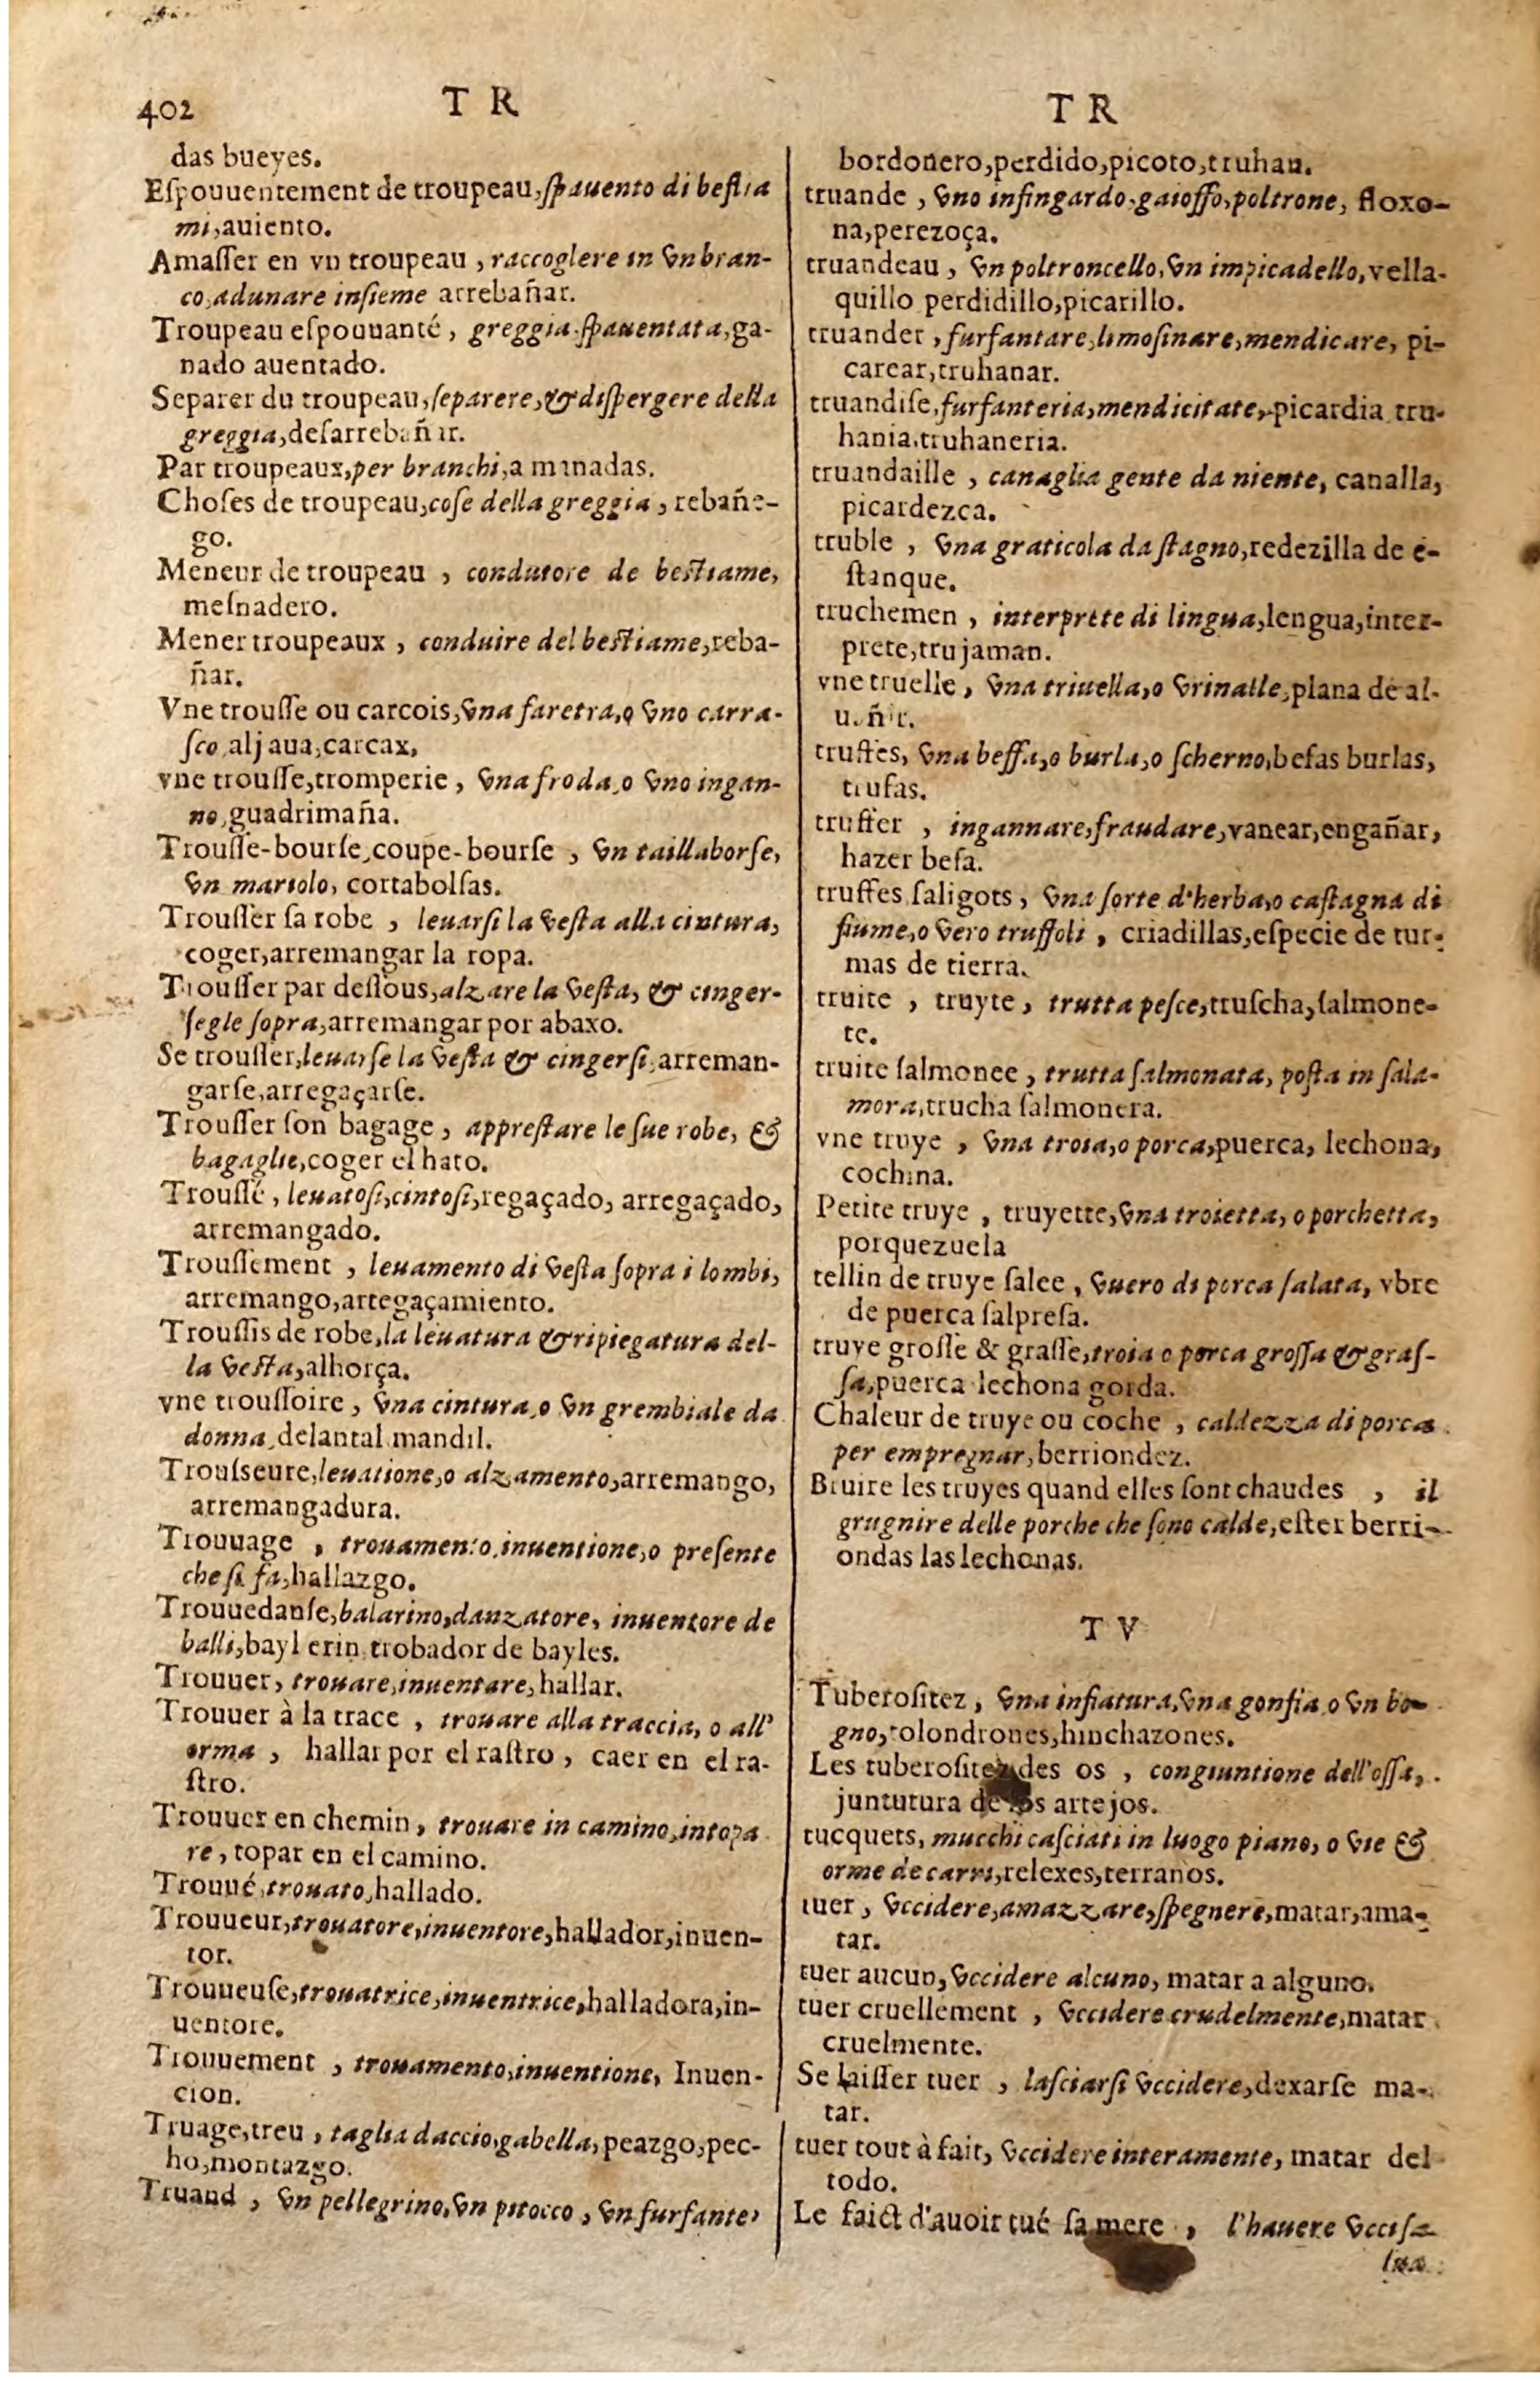 402
T R
das bueyes.
Eſpouuentement de troupeau, ſpauento di beſtia
mi, auiento.
Amaſſer en vn troupeau, raccoglere in vn bran-
co, adunare inſieme arrebañar.
Troupeau eſpouuanté, greggia ſpauentata, ga-
nado auentado.
Separer du troupeau, ſeparere, & diſpergere della
greggia, deſarrebañar.
Par troupeaux, per branchi, a manadas.
Choſes de troupeau, coſe della greggia, rebañe-
go.
Meneur de troupeau, condutore de beſtiame,
meſnadero.
Mener troupeaux, conduire del beſtiame, reba-
ñar.
Vne trouſſe ou carcois, vna faretra, o vno carra-
ſco aljaua, carcax,
vne trouſſe, tromperie, vna froda, o vno ingan-
no, guadrimaña.
Trouſſe-bourſe, coupe-bourſe, vn taillaborſe,
vn mariolo, cortabolſas.
Trouſſer ſa robe, leuarſi la veſta alla cintura,
coger, arremangar la ropa.
Trouſſer par deſſous, alzare la veſta, & cinger-
ſegle ſopra, arremangar por abaxo.
Se trouſſer, leuarſe la veſta & cingerſi, arreman-
garſe, arregaçarſe.
Trouſſer ſon bagage, appreſtare le ſue robe, &
bagaglie, coger el hato.
Trouſſé, leuatoſi, cintoſi, regaçado, arregaçado,
arremangado.
Trouſſement, leuamento di veſta ſopra i lombi,
arremango, arregaçamiento.
Trouſſis de robe, la leuatura & ripiegatura del-
la veſta, alhorça.
vne trouſſoire, vna cintura, o vn grembiale da
donna, delantal mandil.
Trouſseure, leuatione, o alzamento, arremango,
arremangadura.
Trouuage, trouamento, inuentione, o preſente
che ſi fa, hallazgo.
Trouuedanſe, balarino, danzatore, inuentore de
balli, bayl erin, trobador de bayles.
Trouuer, trouare, inuentare, hallar.
Trouuer à la trace, trouare alla traccia, o all'
orma, hallar por el raſtro, caer en el ra-
ſtro.
Trouuer en chemin, trouare in camino, intopa
re, topar en el camino.
Trouué, trouato, hallado.
Trouueur, trouatore, inuentore, hallador, inuen-
tor.
Trouueuſe, trouatrice, inuentrice, halladora, in-
uentore.
Trouuement, trouamento, inuentione, Inuen-
cion.
Truage, treu, taglia daccio, gabella, peazgo, pec-
ho, montazgo.
Truand, vn pellegrino, vn pitocco, vn furfante,
T R
bordonero, perdido, picoto, truhan.
truande, vno infingardo, gaioffo, poltrone, floxo-
na, perezoça.
truandeau, vn poltroncello, vn impicadello, vella-
quillo perdidillo, picarillo.
truander, furfantare, limoſinare, mendicare, pi-
carear, truhanar.
truandiſe, furfanteria, mendicitate, picardia tru-
hania, truhaneria.
truandaille, canaglia gente da niente, canalla,
picardezca.
truble, vna graticola da ſtagno, redezilla de e-
ſtanque.
truchemen, interprete di lingua, lengua, inter-
prete, trujaman.
vne truelle, vna triuella, o vrinalle, plana de al-
u. ñir.
truffes, vna beffa, o burla, o ſcherno, befas burlas,
trufas.
truffer, ingannare, fraudare, vanear, engañar,
hazer befa.
truffes ſaligots, vna ſorte d'herba, o caſtagna di
fiume, o vero truffoli, criadillas, eſpecie de tur-
mas de tierra.
truite, truyte, trutta peſce, truſcha, ſalmone-
te.
truite ſalmonee, trutta ſalmonata, poſta in ſala-
mora, trucha ſalmonera.
vne truye, vna troia, o porca, puerca, lechona,
cochina.
Petite truye, truyette, vna troietta, o porchetta,
porquezuela
tellin de truye ſalee, vuero di porca ſalata, vbre
de puerca ſalpreſa.
truye groſſe & graſſe, troia o porca groſſa & graſ-
ſa, puerca lechona gorda.
Chaleur de truye ou coche, caldezza di porca
per empregnar, berriondez.
Bruire les truyes quand elles ſont chaudes, il
grugnire delle porche che ſono calde, eſter berri-
ondas las lechonas.
T V
Tuberoſitez, vna infiatura, vna gonfia o vn bo-
gno, tolondrones, hinchazones.
Les tuberoſitez des os, congiuntione dell'oſſa,
juntutura de los artejos.
tucquets, mucchi caſciati in luogo piano, o vie &
orme de carri, relexes, terranos.
tuer, vccidere, amazzare, ſpegnere, matar, ama-
tar.
tuer aucun, vccidere alcuno, matar a alguno.
tuer cruellement, vccidere crudelmente, matar
cruelmente.
Se laiſſer tuer, laſciarſi vccidere, dexarſe ma-
tar.
tuer tout à fait, vccidere interamente, matar del
todo.
Le faict d'auoir tué ſa mere, l'hauere vcciſa
ſua